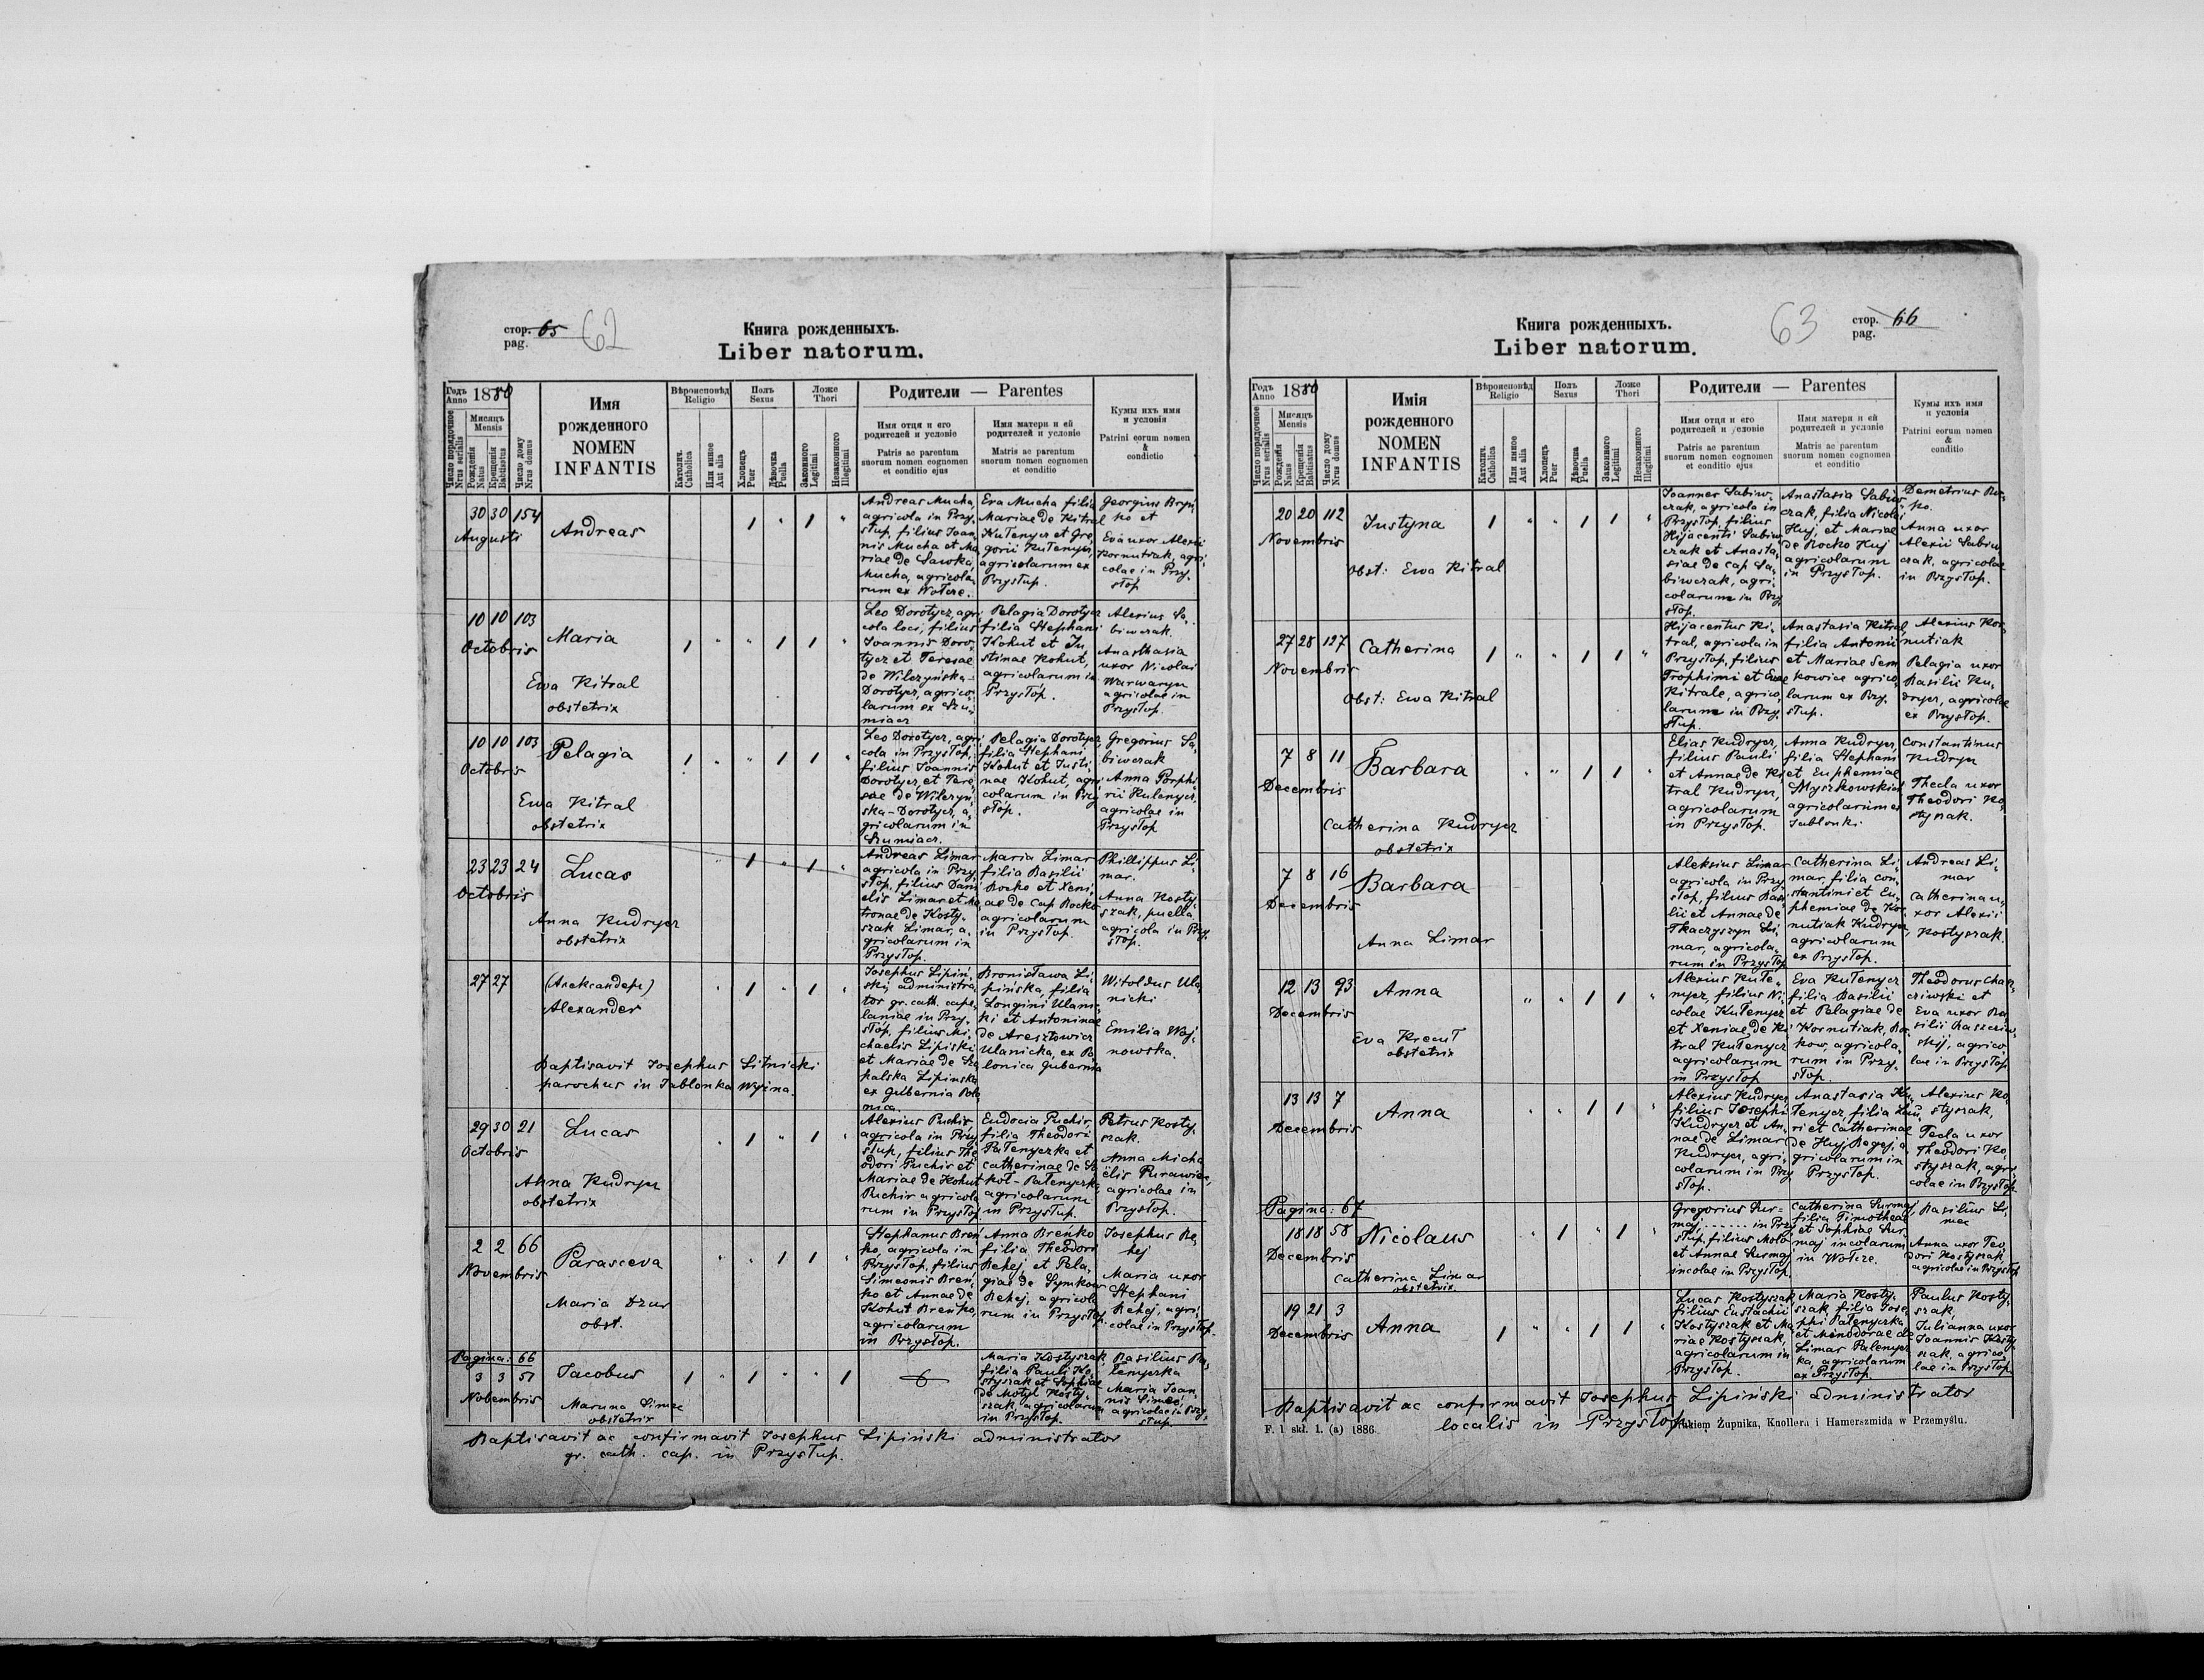 стор. 65 62
pag.
Книга рожденныхъ.
Liber natorum.
Годъ Anno 1880
Число порядочное Nrus serialis
Мисяцъ Mensis
Рождения Natus
Крещения Babtisatus
Число дому Nrus domus
Имя
рожденного
NOMEN
INFANTIS
Вѣроисповѣд Religio
Католич. Catholica
Или инное Aut alia
Полъ Sexus
Хлопецъ Puer
Дѣвочка Puella
Ложе Thori
Законного Legitimi
Незаконного Illegitimi
Родители — Parentes
Имя отця и его
родителей и условіе
Patris ac parentum
suorum nomen cognomen
et conditio ejus
Имя матери и ей
родителей и условіе
Matris ac parentum
suorum nomen cognomen
et conditio
Кумы ихъ имя
и условія
Patrini eorum nomen
&
conditio
30 30 154
Augusti
Andreas
Andreas Mucha,
agricola in Przy,
stup, filius Joan,
nis Mucha et Ma
riae de Sawka,
Mucha, agricola,
rum ex Wołcze.
Eva Mucha filia
Mariae de Kitral
Kułenycz et Gre,
gorii Kułenycz,
agricolarum ex
Przysłup.
Georgius Bryń
ko et
Eva uxor Alexii
Kornutiak, agri,
colae in Przy,
słop
10 10 103
Octobris
Maria
Ewa Kitral
obstetrix
Leo Dorotycz, agri
cola loci, filius
Joannis Doro,
tycz et Teresae
de Wilczyńska-
Dorotycz, agrico,
larum ex Szu,
miacz
Pelagia Dorotycz
filia Stephani
Kohut et Ju
stinae Kohut,
agricolarum in
Przysłóp.
Alexius Sa,
biwczak.
Anasthasia
uxor Nicolai
Warwaryn
agricolae in
Przysłop.
10 10 103
Octobris
Pelagia
Ewa Kitral
obstetrix
Leo Dorotycz, agri
cola in Przysłop,
filius Joannis
Dorotycz, et Tere,
sae de Wilczyń,
ska-Dorotycz, a,
gricolarum in
Szumiacz.
Pelagia Dorotycz,
filia Stephani
Kohut et Justi,
nae Kohut, agri
colarum in Przy
słop.
Gregorius Sa,
biwczak
Anna Porphi,
rii Kulenycz,
agricolae in
Przysłop
23 23 24
Octobris
Lucas
Anna Kudrycz
obstetrix
Andreas Limar
agricola in Przy,
słop, filius Dani
elis Limar et Ma
tronae de Kosty,
szak Limar, a,
gricolarum in
Przysłop.
Maria Limar
filia Basilii
Rocko et Xeni,
ae de Cap Rocko
agricolarum
in Przysłop.
Phillippus Li,
mar.
Anna Kosty,
szak, puella
agricola in Przy,
słop.
27 27
(Александеръ)
Alexander
Baptisavit Josephus Litnicki
parochus in Jablonka Wyżna.
Josephus Lipiń,
ski, administra
tor gr. cath. cape,
laniae in Przy,
słop, filius Mi,
chaelis Lipiski
et Mariae de Sza
kalska Lipińska
ex Gubernia Polo
nica.
Bronisława Li,
pińska, filia
Longini Ulanic
ki et Antoninae
de Aresztowicz
Ulanicka, ex Po
lonica Gubernia
Witoldus Ula
nicki
Emilia Woj,
nowska.
29 30 21
Octobris
Lucas
Anna Kudrycz
obstetrix
Alexius Puchir,
agricola in Przy
słup, filius The
odori Puchir et
Mariae de Kohut
Puchir agricola
rum in Przysłop
Eudocia Puchir,
filia Theodori
Pałenyczka et
Catherinae de
agricolarum
in Przysłup.
Petrus Kosty,
szak.
Anna Micha
elis Purawiec,
agricolae in
Przysłop.
2 2 66
Novembris
Parasceva
Maria Dzur
obst.
Stephanus Breń
ko, agricola in
Przysłop, filius
Simeonis Breń,
ko et Annae de
Kohut Breńko,
agricolarum
in Przysłop.
Anna Breńko
filia Theodori
Rehej, et Pela,
giae de Symkow
Rehej, agricola
rum in Przysłop.
Josephus Re,
hej
Maria uxor
Stephani
Rehej, agri,
colae in Przysłop.
Pagina: 66
3 3 57
Nobembris
Jacobus
obstetrix
Maria Kostyszak
filia Pauli Ko
styszak et Sophiae
de Motyl Kosty,
szak, agricolarum
in Przysłop.
Basilius Pa,
lenyczka
Maria Joan,
nis
agricolae in Przy,
słup.
Baptisavit ac confirmavit Josephus Lipiński administrator
gr. cath. cap. in Przysłup.
63 стор. 66
pag.
Книга рожденныхъ.
Liber natorum.
Годъ Anno 1880
Число порядочное Nrus serialis
Мисяцъ Mensis
Рождения Natus
Крещения Babtisatus
Число дому Nrus domus
Имія
рожденного
NOMEN
INFANTIS
Вѣроисповѣд Religio
Католич. Catholica
Или инное Aut alia
Полъ Sexus
Хлопецъ Puer
Дѣвочка Puella
Ложе Thori
Законного Legitimi
Незаконного Illegitimi
Родители — Parentes
Имя отця и его
родителей и условіе
Patris ac parentum
suorum nomen cognomen
et conditio ejus
Имя матери и ей
родителей и условіе
Matris ac parentum
suorum nomen cognomen
et conditio
Кумы ихъ имя
и условія
Patrini eorum nomen
&
conditio
20 20 112
Novembris
Justyna
obst: Ewa Kitral
Joannes Sabiw,
czak, agricola in
Przysłop, filius
Hijacenti Sabiw
czak et Anasta,
siae de Cap Sa,
biwczak, agri,
colarum in Przy
słop.
Anastasia Sabiw
czak, filia Nicolai
Huj, et Mariae
de Rocko Huj
agricolarum
in Przysłop.
Demetrius
ko.
Anna uxor
Alexii Sabiw
czak, agricolae
in Przysłop.
27 28 127
Novembris
Catherina
Obst: Ewa Kitral
Hijacentus Ki,
tral, agricola in
Przysłop, filius
Trophimi et Evae
Kitrale, agrico,
larum in Przy,
słup.
Anastasia Kitral
filia Antonii
et Mariae Sem
kowicz agrico,
larum ex Przy,
słup.
Alexius Kor,
nutiak
Pelagia uxor
Basilii Ku,
drycz, agricolae
ex Przysłop.
7 8 11
Decembris
Barbara
Catherina Kudrycz
obstetrix
Elias Kudrycz,
filius Pauli
et Annae de Ki
tral Kudrycz,
agricolarum
in Przysłop.
Anna Kudrycz,
filia Stephani
et Euphemiae
Myszkowskich
agricolarum ex
Jablonki
Constantinus
Kudrycz
Thecla uxor
Theodori Ko,
styszak.
7 8 16
Decembris
Barbara
Anna Limar
Aleksius Limar
agricola in Przy
słop, filius Basi
lii et Annae de
Tkaczyszyn Li,
mar, agricola,
rum in Przysłop
Catherina Li,
mar, filia Con,
stantini et Eu,
phemiae de Kor
nutiak Kudrycz,
agricolarum
ex Przysłop.
Andreas Li,
mar
Catherina u,
xor Alexii
Kostyszak.
12 13 93
Decembris
Anna
Eva Krecuł
obstetrix
Alexius Kułe,
nycz, filius Ni,
colae Kułenycz
et Xeniae de Ki,
tral Kułenycz
agricolarum
in Przysłop
Eva Kułenycz
filia Basilii
et Pelagiae de
Kornutiak,
kow, agricola,
rum in Przy,
słop.
Theodorus Chas,
cziwski et
Eva uxor Ba
silii
skij, agrico,
lae in Przysłop
13 13 7
Decembris
Anna
Alexius Kudrycz
filius Josephi
Kudrycz et An,
nae de Limar
Kudrycz, agri,
colarum in Przy
słop.
Anastasia Ku,
łenycz filia
ri et Catherinae
de Huj Rogej, a
gricolarum in
Przysłop.
Alexius Ko,
styszak,
Tecla uxor
Theodori Ko,
styszak, agri
colae in Przysłop
Pagina: 67
18 18 58
Decembris
Nicolaus
Catherina Limar
obstetrix.
Gregorius Sur=
maj, ...... in Przy
słup, filius
et Annae Surmaj
incolae in Przysłop.
Catherina Surmaj,
filia Timotheae
et Sophiae Sur
maj incolarum
in Wołcze.
Basilius Si,
mec
Anna uxor Teo,
dori Kostyszak,
agricolae in Przysłop
19 21 3
Decembris
Anna
Lucas Kostyszak
filius Eustachii
Kostyszak et Ma
riae Kostyszak,
agricolarum in
Przysłop.
Maria Kosty,
szak, filia Jose,
phi Palenyczka
et Menodorae de
Limar Palenycz
ka, agricolarum
ex Przysłop.
Paulus Kosty,
szak,
Julianna uxor
Joannis Kosty,
szak, agrico,
lae in Przysłop.
Baptisavit ac confirmavit Josephus Lipiński administrator
localis in Przysłop.
F. 1 skł. 1. (a) 1886
Żupnika, Knollera i Hamerszmida w Przemyślu.